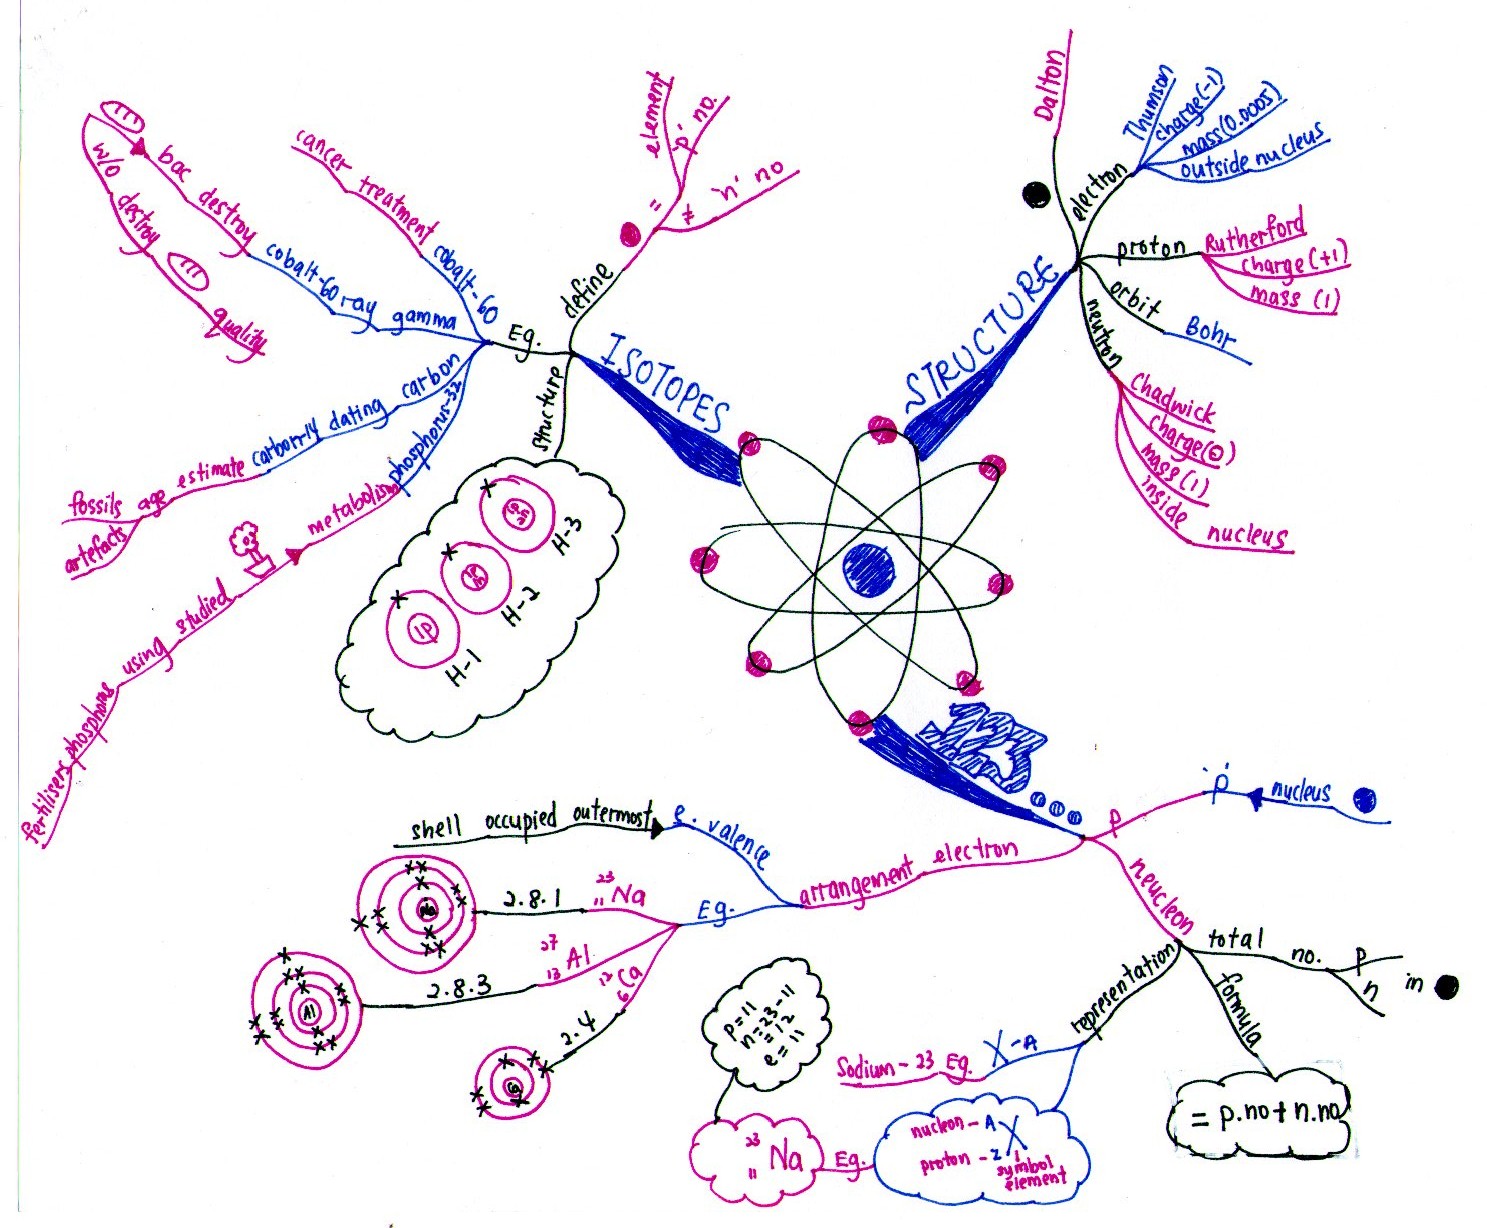 ISOTOPES
define
=
element
'p' no.
≠
'n' no
structure
H-3
H-2
H-1
1P
Eg.
cobalt-60
cancer treatment
gamma
cobalt-60 ray
bac destroy
w/o
destroy
quality
carbon
carbon-14 dating
age estimate
fossils
artefacts
phosphorus-32
metabolism
studied
using
phosphorus
fertilisers
STRUCTURE
Dalton
electron
Thumson
charge(-1)
mass(0.0005)
outside nucleus
proton
Rutherford
charge (+1)
mass (1)
orbit
Bohr
neutron
Chadwick
charge(0)
mass (1)
inside nucleus
123
P
'p'
nucleus
neucleon
total no.
P
n
in
formula
= p.no + n.no
representation
X-A
Eg.
Sodium - 23
nucleon - A
X
proton - Z
symbol
element
Eg.
23
11 Na
p=11
n=23-11
=12
e=11
arrangement electron
e. valence
shell occupied outermost
Eg.
23
11 Na
2.8.1
Na
27
13 Al
2.8.3
Al
12
6 Ca
2.4